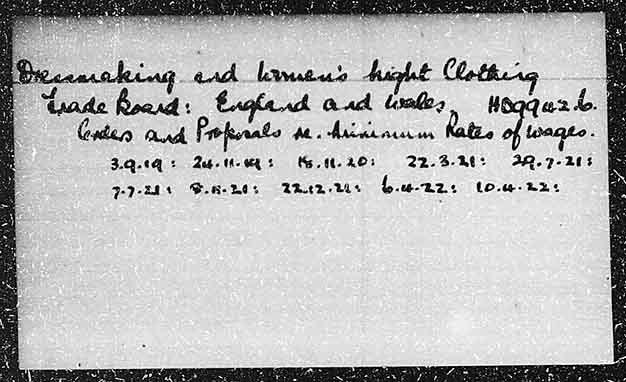 Dressmaking and Women's Light Clothing
Trade Board: England and Wales. HD9942.6.
Orders and Proposals re. Minimum Rates of Wages.
3.9.19: 24.11.19: 18.11.20: 22.3.21: 29.7.21:
7.7.21: 8.11.21: 22.12.21: 6.4.22: 10.4.22: